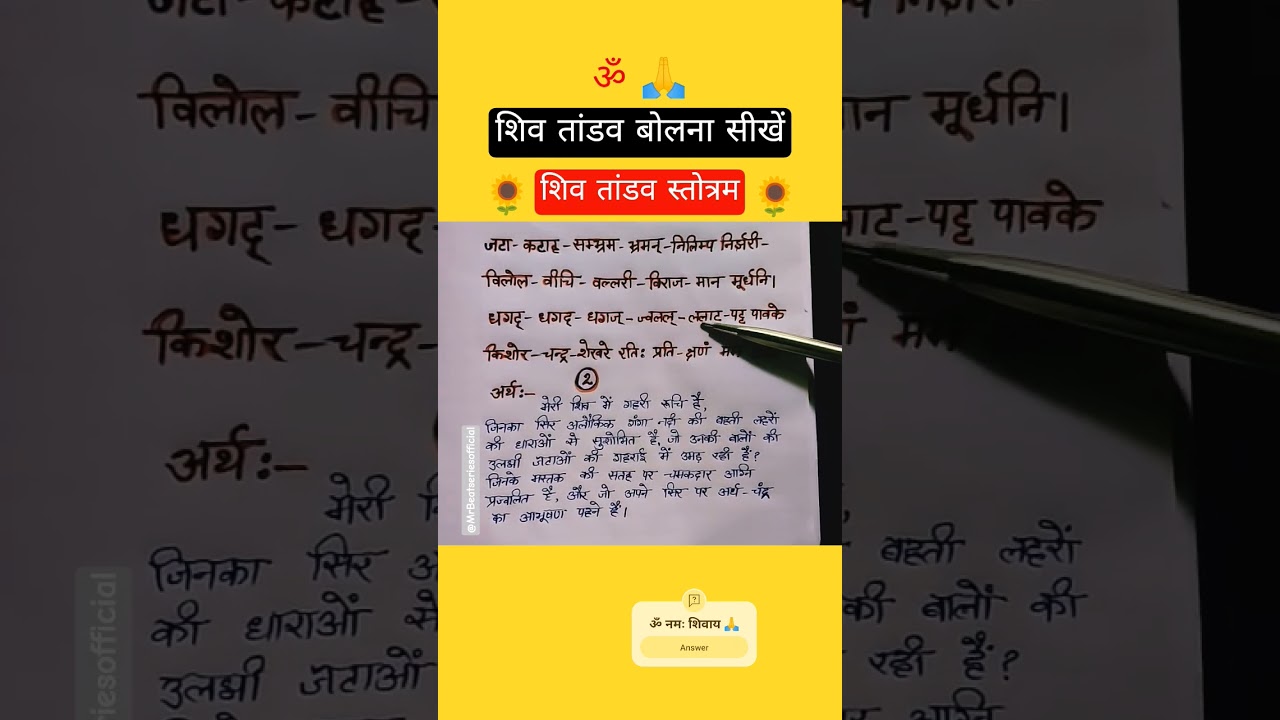 ॐ 🙏
शिव तांडव बोलना सीखें
🌻 शिव तांडव स्तोत्रम 🌻
जटा-कटाह-सम्भ्रम-भ्रमन्-निलिम्प निर्झरी-
विलोल-वीचि-वल्लरी-विराज-मान मूर्धनि।
धगद्-धगद्-धगज्-ज्वलल्-ललाट-पट्ट पावके
किशोर-चन्द्र-शेखरे रतिः प्रति-क्षणं
②
अर्थः-
मेरी शिव में गहरी रुचि है,
जिनका सिर अलौकिक गंगा नदी की बहती लहरों
की धाराओं से सुशोभित है, जो उनकी बालों की
उलझी जटाओं की गहराई में उमड़ रही है?
जिनके मस्तक की सतह पर चमकदार अग्नि
प्रज्वलित है, और जो अपने सिर पर अर्ध-चंद्र
का आभूषण पहने हैं।
@MrBeatseriesofficial
ॐ नमः शिवाय 🙏
Answer